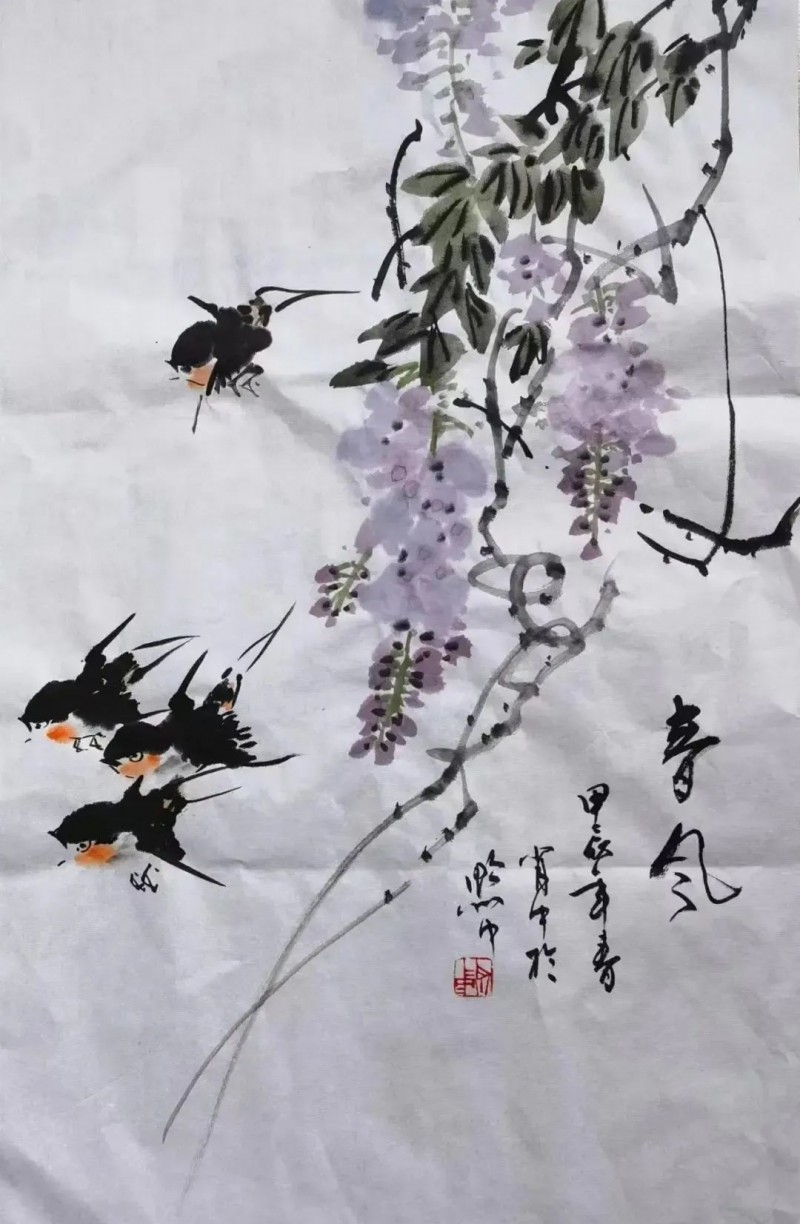 春风
甲辰年春
肖中於
中